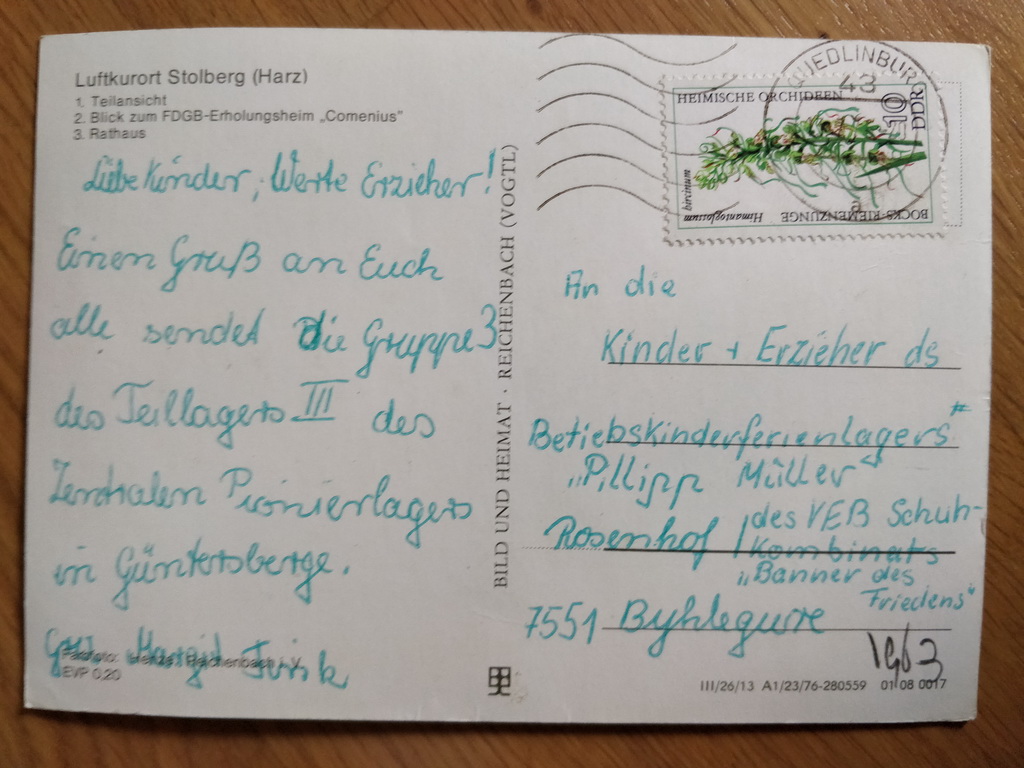 Luftkurort Stolberg (Harz)
1. Teilansicht
2. Blick zum FDGB-Erholungsheim „Comenius"
3. Rathaus
Liebe Kinder, Werte Erzieher!
Einen Gruß an Euch
alle sendet die Gruppe 3
des Teillagers III des
Zentralen Pionierlagers
in Güntersberge.
Margit
EVP 0,20
BILD UND HEIMAT · REICHENBACH (VOGTL)
QUEDLINBURG
43
a
HEIMISCHE ORCHIDEEN
10
DDR
BOCKS-RIEMENZUNGE
Himantoglossum
hircinum
An die
Kinder + Erzieher ds
Betiebskinderferienlagers
„Pillipp Müller"
Rosenhof / des VEB Schuh-
Kombinats
„Banner des
Friedens"
7551 Byhlegurre
1963
III/26/13 A1/23/76-280559 01 08 0017